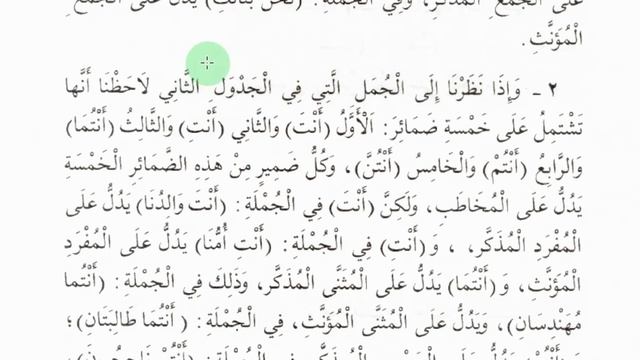 عَلَى الْجَمْعِ الْمُذَكَّرِ، وَفِي الْجُمْلَةِ: (نَحْنُ بَنَاتُكِ) يَدُلُّ عَلَى الْجَمْعِ
الْمُؤَنَّثِ.
٢ ـ وَإِذَا نَظَرْنَا إِلَى الْجُمَلِ الَّتِي فِي الْجَدْوَلِ الثَّانِي لَاحَظْنَا أَنَّهَا
تَشْتَمِلُ عَلَى خَمْسَةِ ضَمَائِرَ: اَلْأَوَّلُ (أَنْتَ) وَالثَّانِي (أَنْتِ) وَالثَّالِثُ (أَنْتُمَا)
وَالرَّابِعُ (أَنْتُمْ) وَالْخَامِسُ (أَنْتُنَّ)، وَكُلُّ ضَمِيرٍ مِنْ هَذِهِ الضَّمَائِرِ الْخَمْسَةِ
يَدُلُّ عَلَى الْمُخَاطَبِ، وَلَكِنَّ (أَنْتَ) فِي الْجُمْلَةِ: (أَنْتَ وَالِدُنَا) يَدُلُّ عَلَى
الْمُفْرَدِ الْمُذَكَّرِ، ، وَ(أَنْتِ) فِي الْجُمْلَةِ: (أَنْتِ أُمُّنَا) يَدُلُّ عَلَى الْمُفْرَدِ
الْمُؤَنَّثِ، وَ(أَنْتُمَا) يَدُلُّ عَلَى الْمُثَنَّى الْمُذَكَّرِ، وَذَلِكَ فِي الْجُمْلَةِ: (أَنْتُمَا
مُهَنْدِسَانِ)، وَيَدُلُّ عَلَى الْمُثَنَّى الْمُؤَنَّثِ، فِي الْجُمْلَةِ: (أَنْتُمَا طَالِبَتَانِ)؛